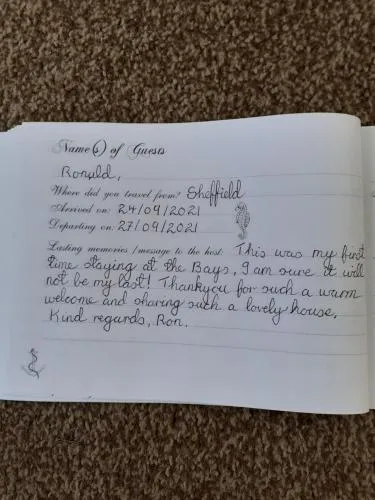 Name(s) of Guests
Ronald,
Where did you travel from? Sheffield
Arrived on: 24/09/2021
Departing on: 27/09/2021
Lasting memories /message to the host: This was my first
time staying at the Bays, I am sure it will
not be my last! Thankyou for such a warm
welcome and sharing such a lovely house,
Kind regards, Ron.